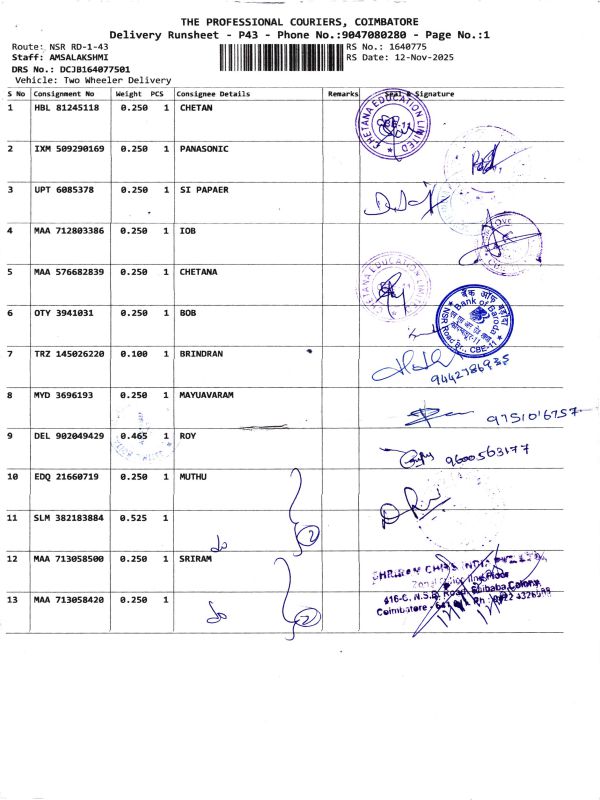 THE PROFESSIONAL COURIERS, COIMBATORE
Delivery Runsheet - P43 - Phone No.:9047080280 - Page No.:1
Route: NSR RD-1-43 RS No.: 1640775
Staff: AMSALAKSHMI RS Date: 12-Nov-2025
DRS No.: DCJB164077501
Vehicle: Two Wheeler Delivery
S No Consignment No Weight PCS Consignee Details Remarks Seal & Signature
1 HBL 81245118 0.250 1 CHETAN
CHETANA EDUCATION LIMITED
CBE-11
2 IXM 509290169 0.250 1 PANASONIC
3 UPT 6085378 0.250 1 SI PAPAER
4 MAA 712803386 0.250 1 IOB
5 MAA 576682839 0.250 1 CHETANA
CHETANA EDUCATION LIMITED
6 OTY 3941031 0.250 1 BOB
बैंक ऑफ़ बड़ौदा
Bank of Baroda
NSR Road Br., CBE-11
7 TRZ 145026220 0.100 1 BRINDRAN
9442786935
8 MYD 3696193 0.250 1 MAYUAVARAM
9751016757
9 DEL 902049429 0.465 1 ROY
9600563177
10 EDQ 21660719 0.250 1 MUTHU
11 SLM 382183884 0.525 1
do 2
12 MAA 713058500 0.250 1 SRIRAM
13 MAA 713058420 0.250 1
do 2
416-C, N.S.R. Road, Saibaba Colony,
Coimbatore - 641 Ph : 0422 4326